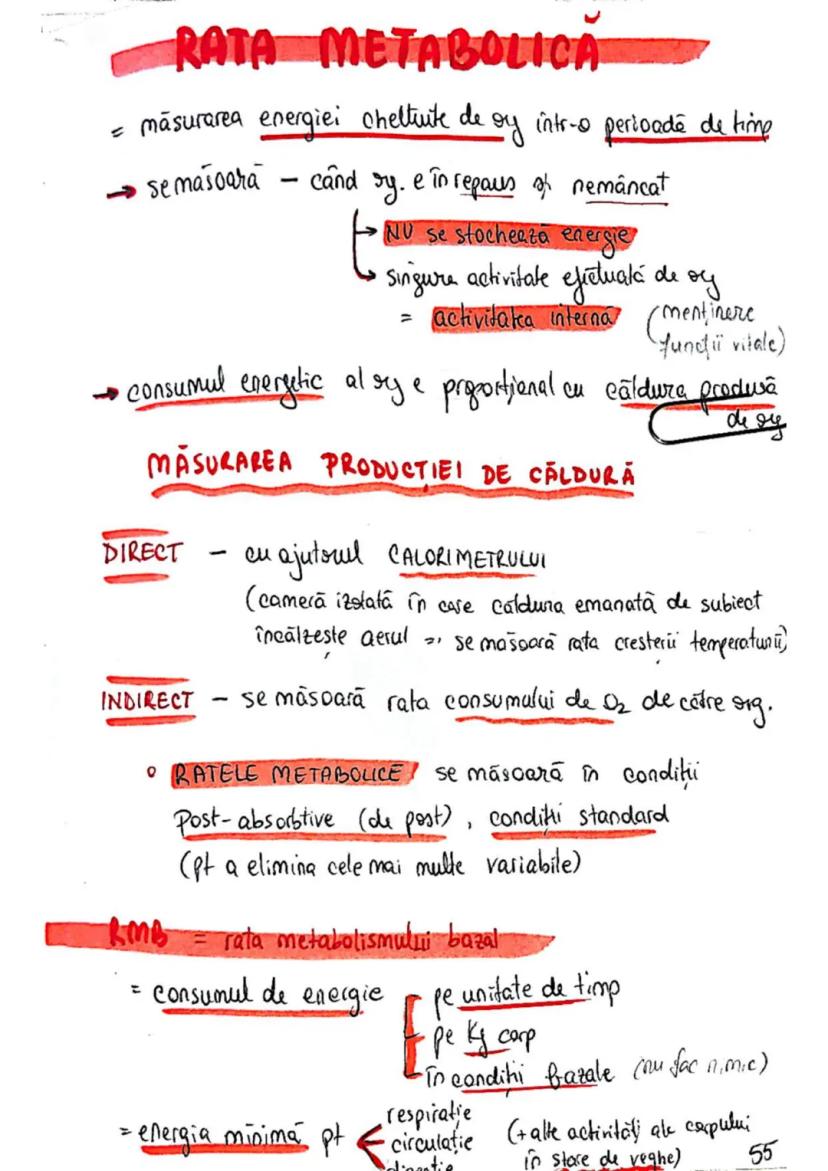 RATA METABOLICĂ
= măsurarea energiei cheltuite de og într-o perioadă de timp
→ se măsoară - când og. e în repaus și nemâncat
→ NU se stochează energie
→ singura activitate efectuată de og
= activitatea internă (menținere
funcții vitale)
→ consumul energetic al og e proporțional cu căldura produsă
de og
MĂSURAREA PRODUCȚIEI DE CĂLDURĂ
DIRECT - cu ajutorul CALORIMETRULUI
(cameră izolată în care căldura emanată de subiect
încălzește aerul =, se măsoară rata creșterii temperaturii)
INDIRECT - se măsoară rata consumului de O2 de către org.
o RATELE METABOLICE se măsoară în condiții
Post-absorbtive (de post), condiții standard
(pt a elimina cele mai multe variabile)
RMB = rata metabolismului bazal
= consumul de energie pe unitate de timp
pe Kg corp
în condiții bazale (nu fac nimic)
= energia minimă pt respirație
circulație (+ alte activități ale corpului
digestie în stare de veghe) 55